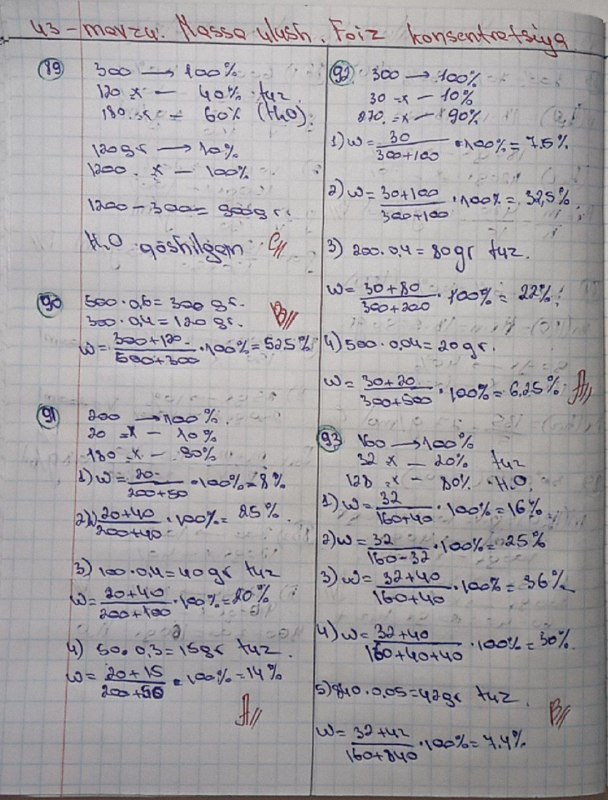 43-mavzu. Massa ulush. Foiz konsentratsiya
89
300 → 100%
120=x — 40% tuz
180=x — 60% (H2O)
120gr → 10%
1200=x — 100%
1200-300=900gr.
H2O qo'shilgan C//
90
500·0,6=300 gr.
300·0,4=120 gr. B//
w= 300+120 / 500+300 ·100%=52,5%
91
200 → 100%
20=x — 10%
180=x — 90%
1) w= 20 / 200+50 ·100%=8%
2) 20+40 / 200+40 ·100%= 25%
3) 100·0,4=40gr tuz
w= 20+40 / 200+100 ·100%=20%
4) 50·0,3=15gr tuz.
w= 20+15 / 200+50 ·100%=14%
A//
92
300 → 100%
30=x — 10%
270=x — 90%
1) w= 30 / 300+100 ·100%=7,5%
2) w= 30+100 / 300+100 ·100%= 32,5%
3) 200·0,4=80gr tuz.
w= 30+80 / 300+200 ·100%= 22%
4) 500·0,04=20gr.
w= 30+20 / 300+500 ·100%= 6,25% A//
93
160 → 100%
32=x — 20% tuz
128=x — 80% H2O
1) w= 32 / 160+40 ·100%=16%
2) w= 32 / 160-32 ·100%=25%
3) w= 32+40 / 160+40 ·100%=36%
4) w= 32+40 / 160+40+40 ·100%=30%
5) 840·0,05=42gr tuz.
B//
w= 32+42 / 160+840 ·100%=7,4%